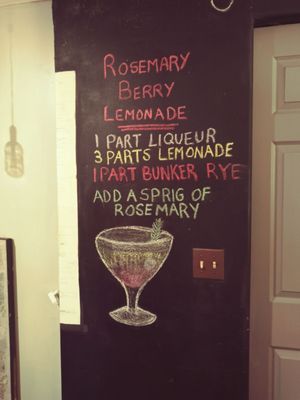 ROSEMARY
BERRY
LEMONADE
1 PART LIQUEUR
3 PARTS LEMONADE
1 PART BUNKER RYE
ADD A SPRIG OF
ROSEMARY